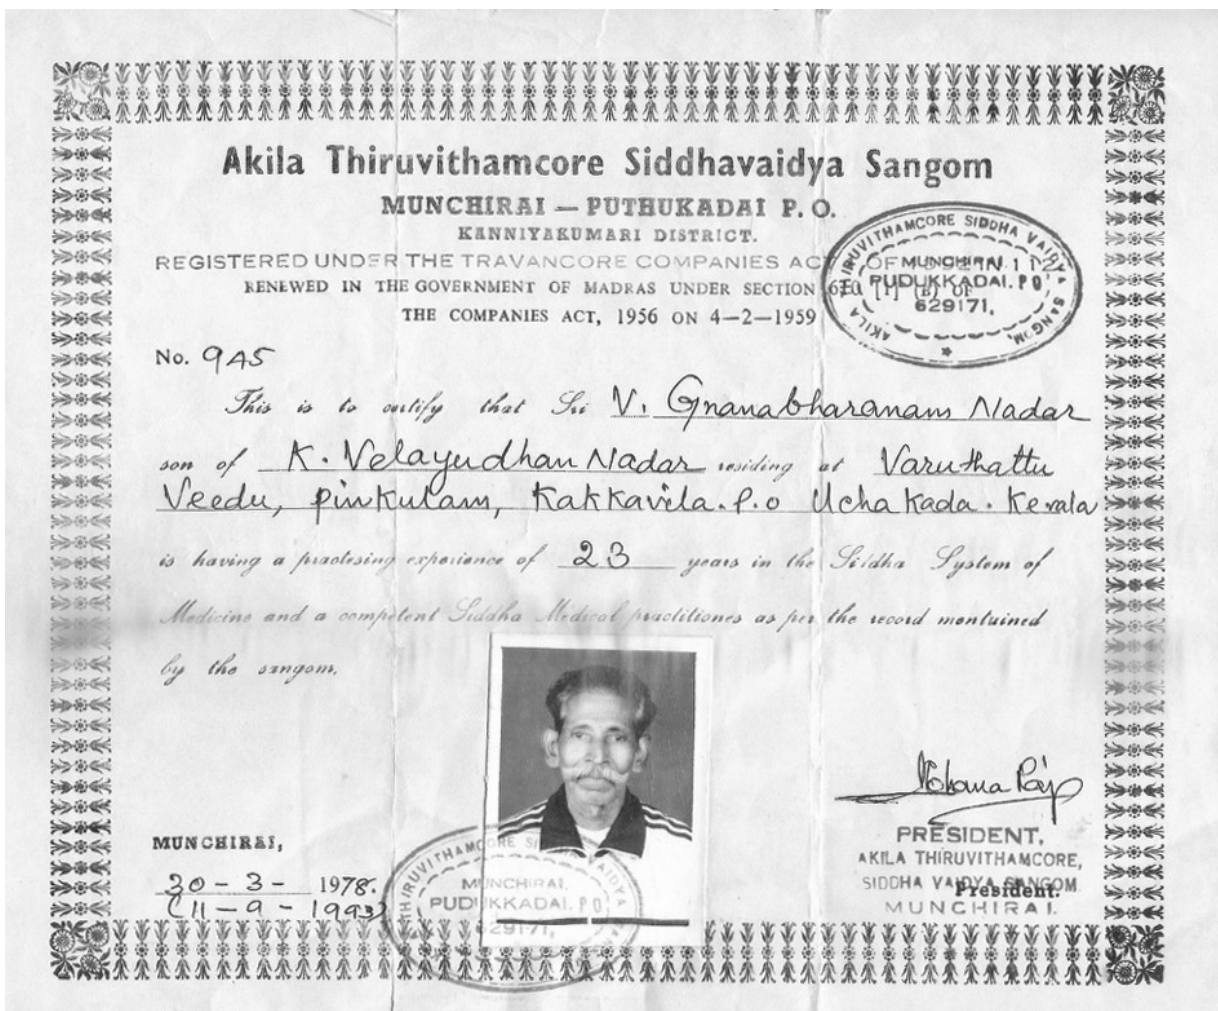 Akila Thiruvithamcore Siddhavaidya Sangom
MUNCHIRAI — PUTHUKADAI P. O.
KANNIYAKUMARI DISTRICT.
REGISTERED UNDER THE TRAVANCORE COMPANIES ACT OF
RENEWED IN THE GOVERNMENT OF MADRAS UNDER SECTION OF
THE COMPANIES ACT, 1956 ON 4—2—1959
AKILA THIRUVITHAMCORE SIDDHA VAIDYA SANGOM.
MUNCHIRAI.
PUDUKKADAI. P O
629171,
No. 945
This is to certify that Sri V. Gnanabharanam Nadar
son of K. Velayudhan Nadar residing at Varuthattu
Veedu, pinkulam, Kakkavila. P.o Ucha Kada. Kerala
is having a practesing experience of 23 years in the Siddha System of
Medicine and a competent Siddha Medical practitiones as per the record mentained
by the sangom.
MUNCHIRAI,
30 - 3 - 1978.
(11 - 9 - 1993)
THIRUVITHAMCORE SIDDHA VAIDYA
MUNCHIRAI,
PUDUKKADAI. P O
629171,
PRESIDENT,
AKILA THIRUVITHAMCORE,
SIDDHA VAIDYA SANGOM
President.
MUNCHIRAI.